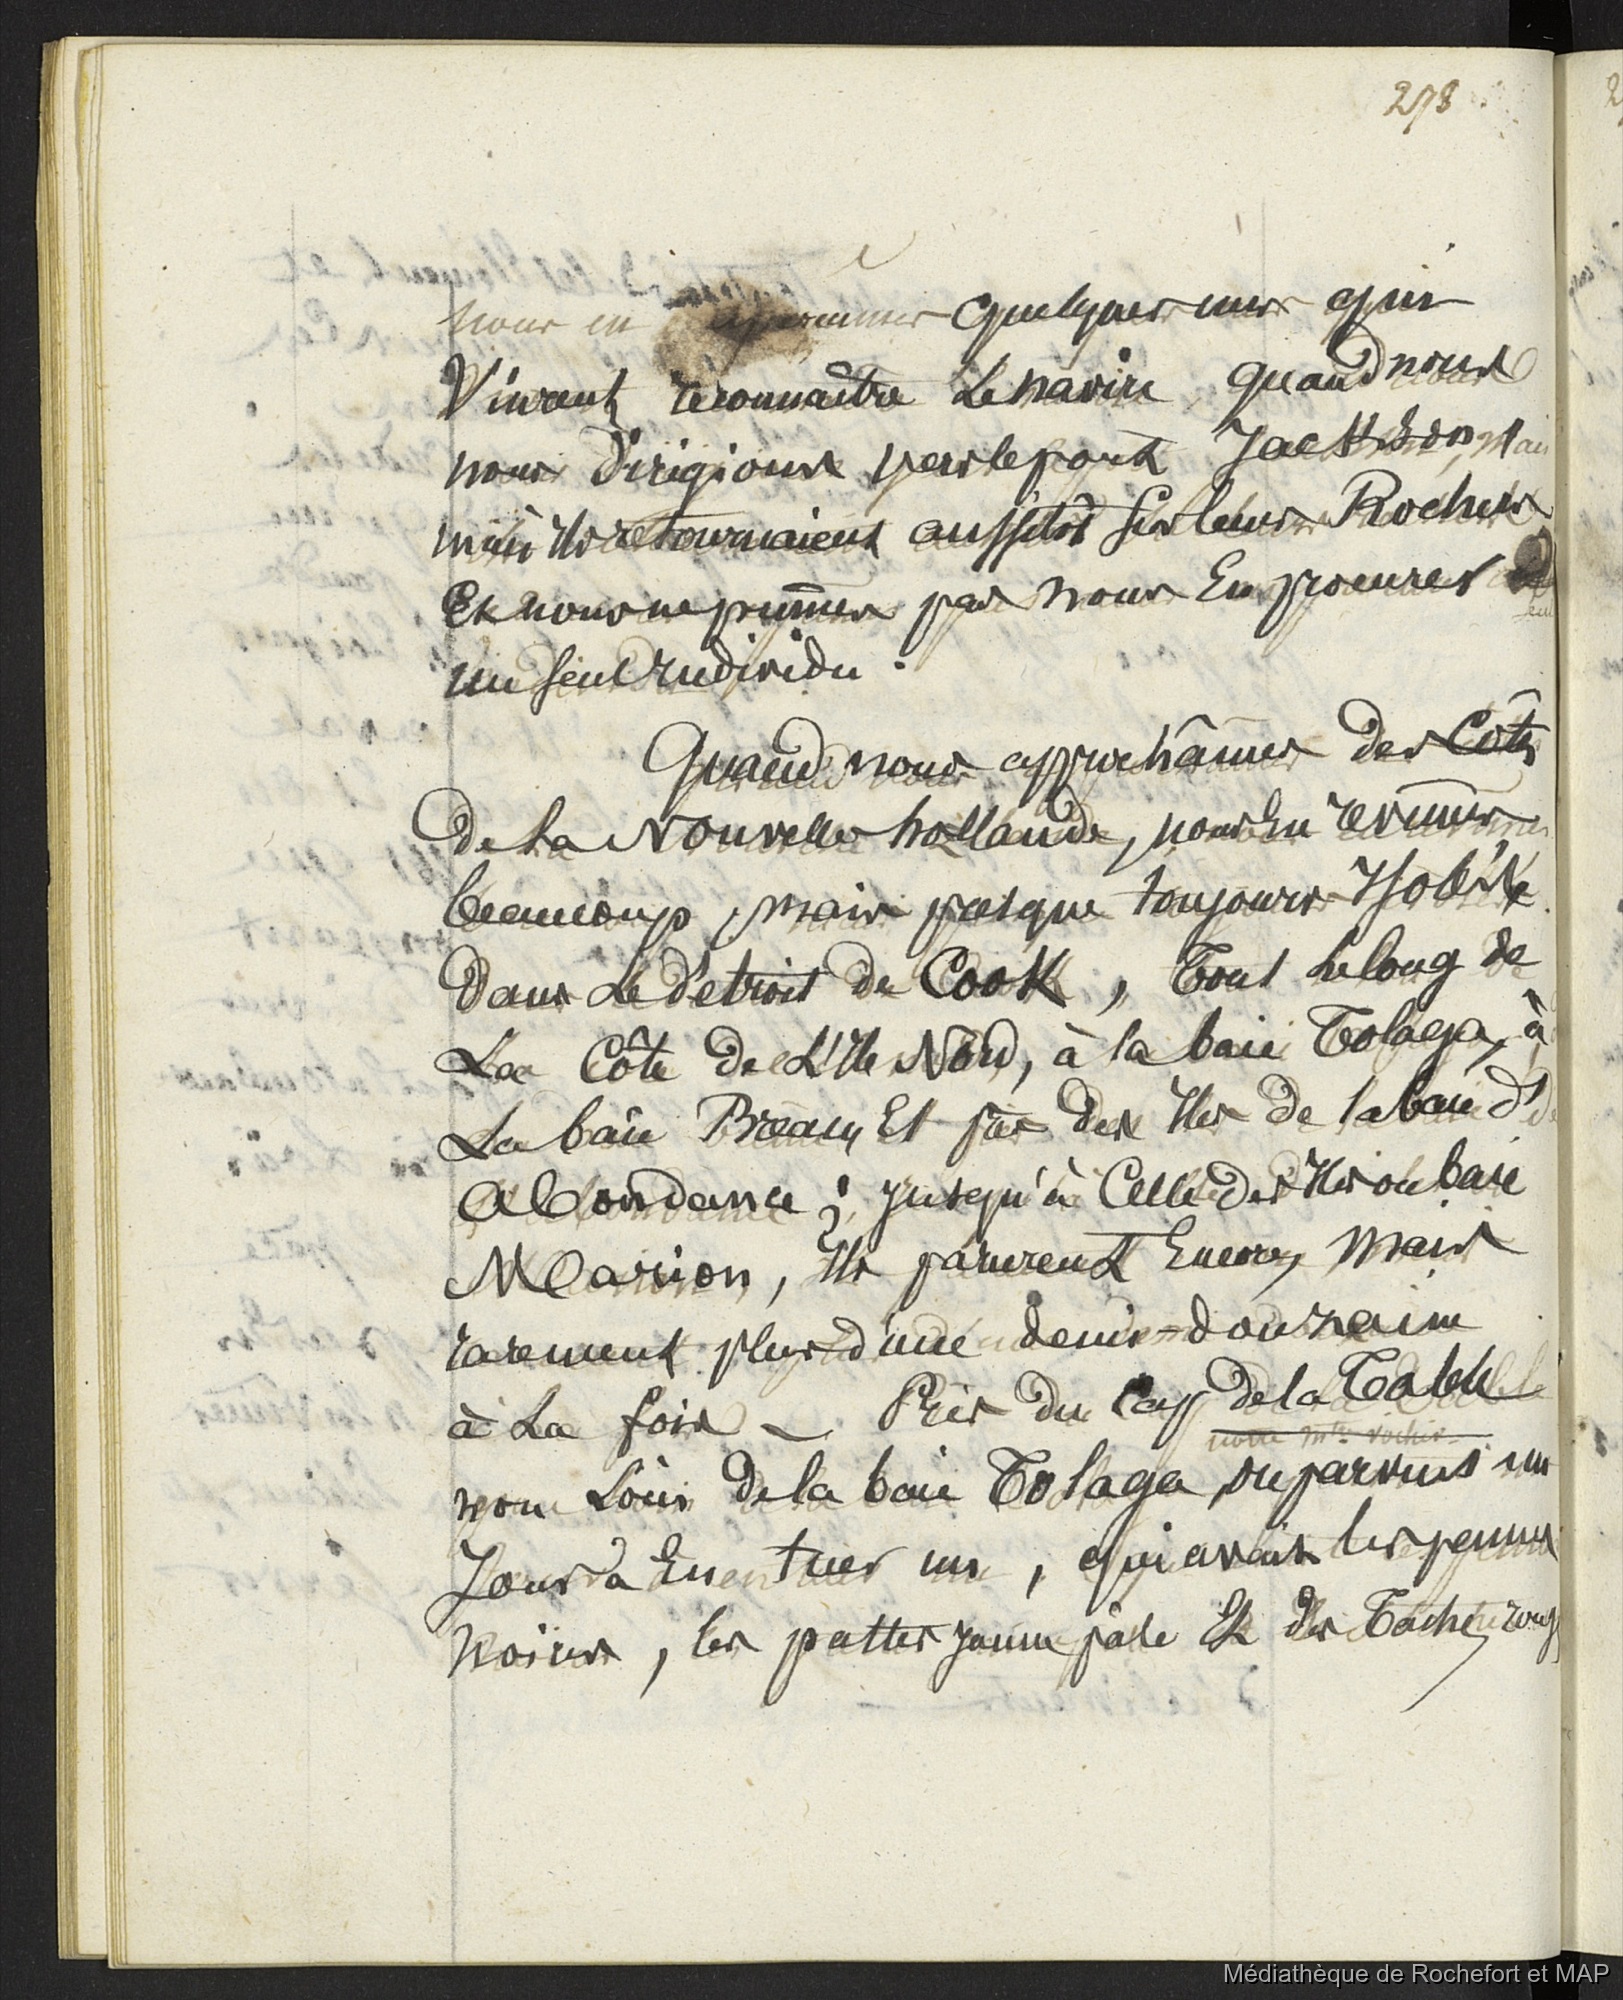 278
nous en quelques uns qui
Vinrent reconnaître le navire, quand nous
nous dirigions vers le port Jackson, Mais
mais ils retournaient aussitôt sur leurs Rochers
Et nous ne pûmes pas nous En procurer
un seul Individu.
Quand nous approchâmes des Côtes
de la Nouvelle hollande, nous En revîmes
beaucoup, mais presque toujours Isolés
Dans le détroit de Cook, Tout le long de
La Côte de L'Ile Nord, à la baie Tolaga, à
La baie Bream, Et sur des Iles de la baie d'
Abondance ; jusqu'à Celle des Iles ou baie
Marion, Ils parurent Encore, mais
rarement plus d'une demie-douzaine
à La fois — Près du Cap de la Table
non Loin de la baie Tolaga, on parvint un
Jour à En tuer un, qui avait les pennes
Noires, les pattes jaune pâle Et des Taches roug
Médiathèque de Rochefort et MAP